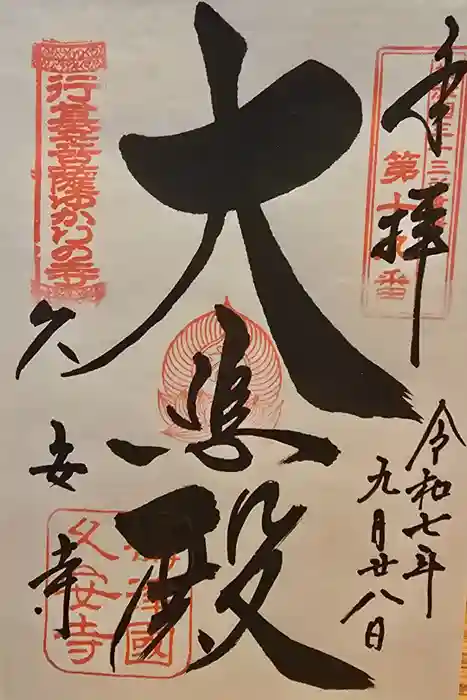 奉拝
第十九番
令和七年
九月廿八日
大悲殿
行基菩薩ゆかりの寺
久安寺
攝津國
久安寺